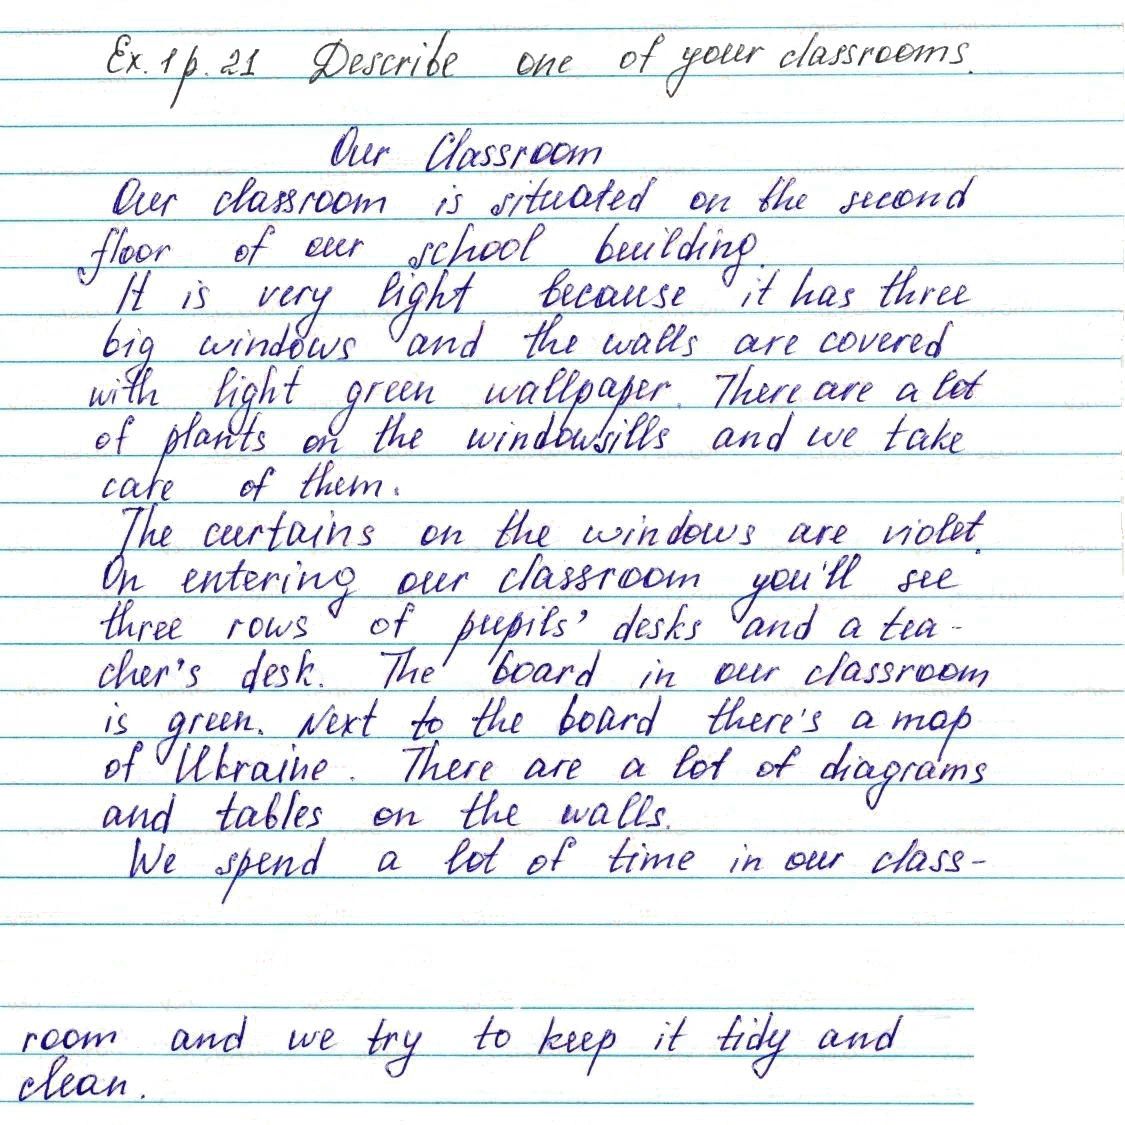 Ex. 1 p. 21 Describe one of your classrooms.
Our Classroom
Our classroom is situated on the second
floor of our school building.
It is very light because it has three
big windows and the walls are covered
with light green wallpaper. There are a lot
of plants on the windowsills and we take
care of them.
The curtains on the windows are violet.
On entering our classroom you'll see
three rows of pupils' desks and a tea-
cher's desk. The board in our classroom
is green. Next to the board there's a map
of Ukraine. There are a lot of diagrams
and tables on the walls.
We spend a lot of time in our class-
room and we try to keep it tidy and
clean.